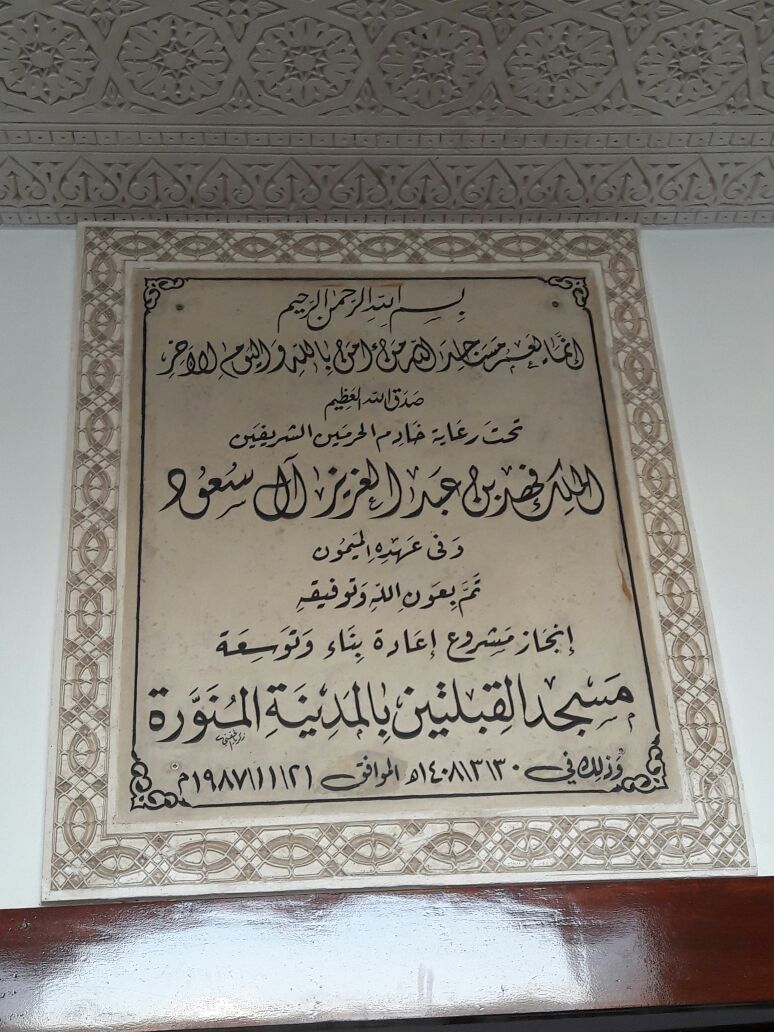 بسم الله الرحمن الرحيم
إنما يعمر مساجد الله من ءامن بالله واليوم الآخر
صدق الله العظيم
تحت رعاية خادم الحرمين الشريفين
الملك فهد بن عبد العزيز آل سعود
وفي عهده الميمون
تم بعون الله وتوفيقه
إنجاز مشروع إعادة بناء وتوسعة
مسجد القبلتين بالمدينة المنورة
وذلك في ١٤٠٨/٣/٣٠هـ الموافق ١٩٨٧/١١/٢١م